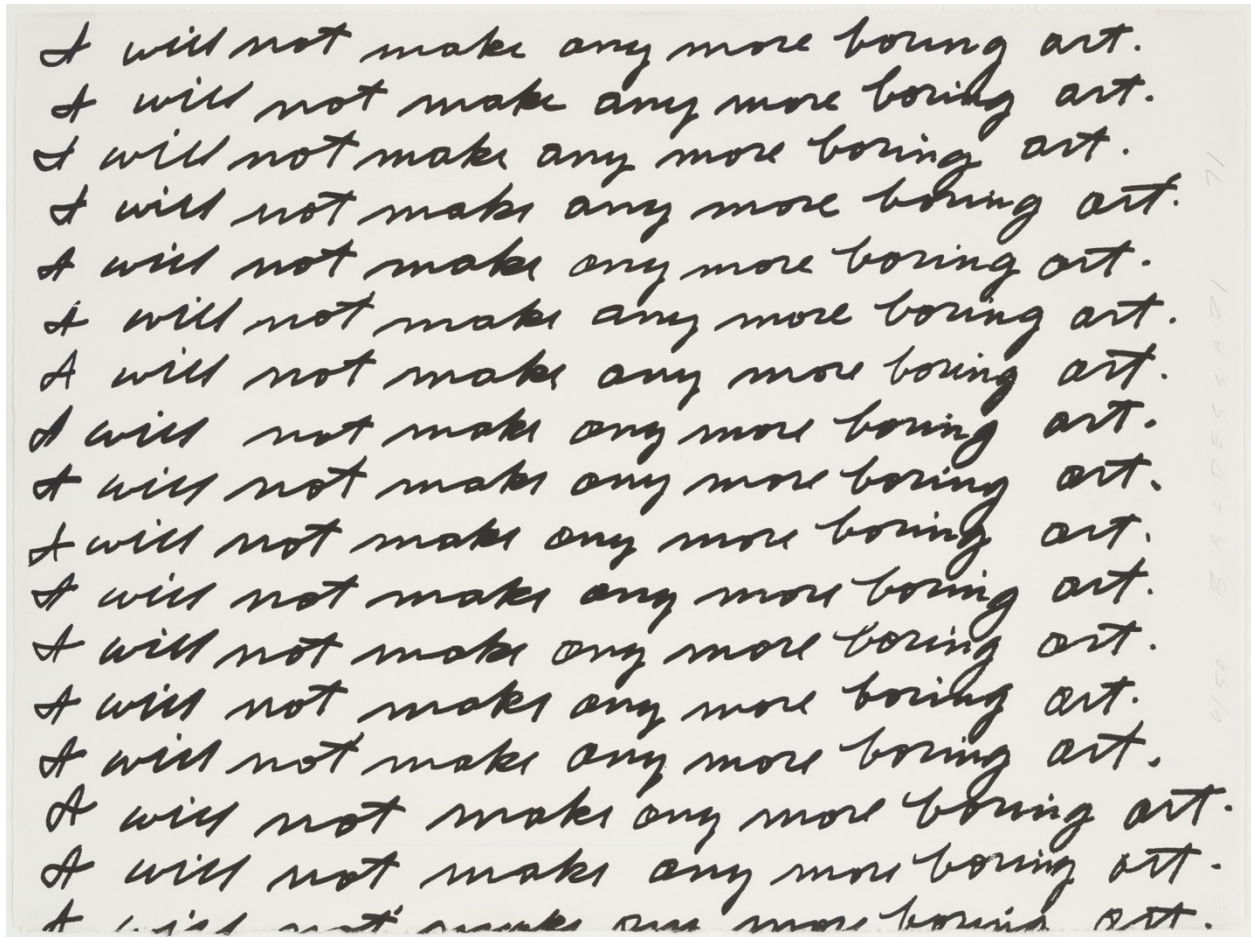 I will not make any more boring art.
I will not make any more boring art.
I will not make any more boring art.
I will not make any more boring art.
I will not make any more boring art.
I will not make any more boring art.
I will not make any more boring art.
I will not make any more boring art.
I will not make any more boring art.
I will not make any more boring art.
I will not make any more boring art.
I will not make any more boring art.
I will not make any more boring art.
I will not make any more boring art.
I will not make any more boring art.
I will not make any more boring art.
I will not make any more boring art.
6/50 BALDESSARI 71